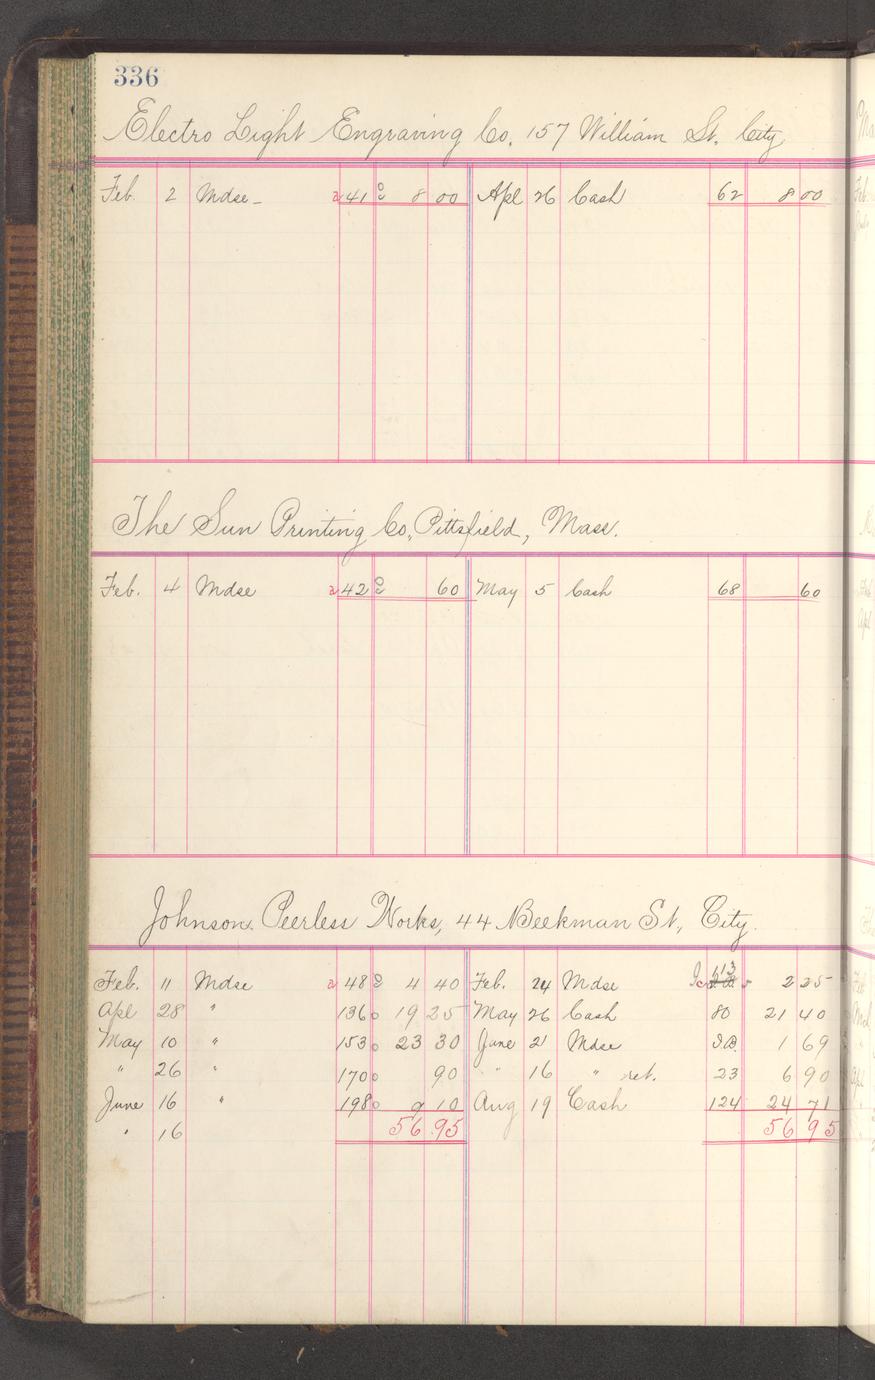 336
Electro Light Engraving Co. 157 William St. City
Feb. 2 Mdse 2 41 8 00 Apl 26 Cash 62 8 00
The Sun Printing Co., Pittsfield, Mass.
Feb. 4 Mdse 2 42 60 May 5 Cash 68 60
Johnson Peerless Works, 44 Beekman St., City.
Feb. 11 Mdse 2 48 4 40 Feb. 24 Mdse 2 25
Apl 28 " 136 19 25 May 26 Cash 80 21 40
May 10 " 153 23 30 June 21 Mdse 1 69
" 26 " 170 90 " 16 " ret. 23 6 90
June 16 " 198 9 10 Aug 19 Cash 124 24 71
" 16 56 95 56 95